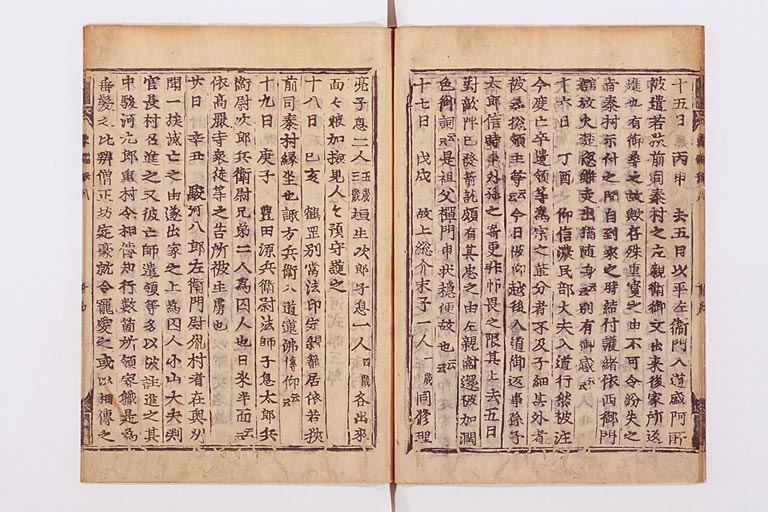 十五日 丙申 去五日以平左衛門入道盛阿所
被遣若狭前司泰村之左親衛御文出来後家所送
進也有御尋之故歟在殊重寶之由不可令紛失之
旨泰村示付之間自到来之時結付護緒依西御門
館放火楚忽雖走出猶随身云云別有御感云云
十六日 丁酉 仰信濃民部大夫入道行然被注
今度亡卒遺領等 宗之輩分者不及子細其外者
被召惣領主等云云今日被仰越後入道御返事孫子
太郎信時事外孫之寄更非怖畏之限其上去五日
對敵陣已發箭訖頗有其忠之由左親衛還被加潤
色御詞云云是祖父禪門申状穏便故也云云
十七日 戊戌 故上総介末子一人一歳同修理
亮子息二人五歳三歳垣生次郎子息一人四歳各出来
面々被加撿見人々預守護之
十八日 己亥 鶴岡別當法印定親籠居依若狭
前司泰村縁坐也諏方兵衛入道蓮佛傳仰云云
十九日 庚子 豊田源兵衛尉法師子息太郎兵
衛尉次郎兵衛尉兄弟二人為囚人也日来半面云云
依高嚴寺衆徒等之告所被生虜也
廿日 辛丑 駿河八郎左衛門尉胤村者在奥州
聞一族滅亡之由遂出家之上為囚人小山大夫判
官長村召進之又彼亡師遺領等多以破註進之其
中駿河九郎重村令相傳知行數箇所領家職是為
垂髪之比辨僧正坊定豪就令寵愛之或以相傳之